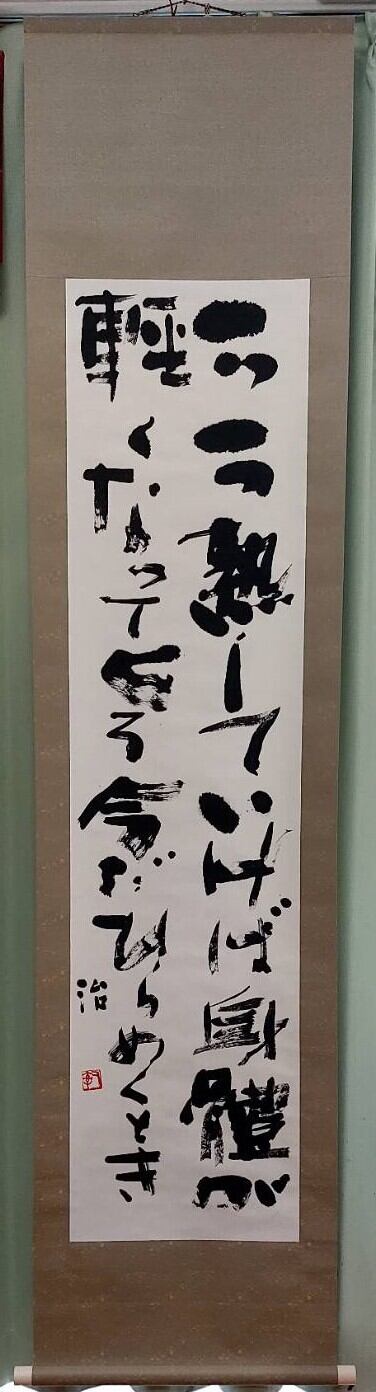 一つ一つ熟していけば身體が
軽くなって来る今だひらめくとき
治